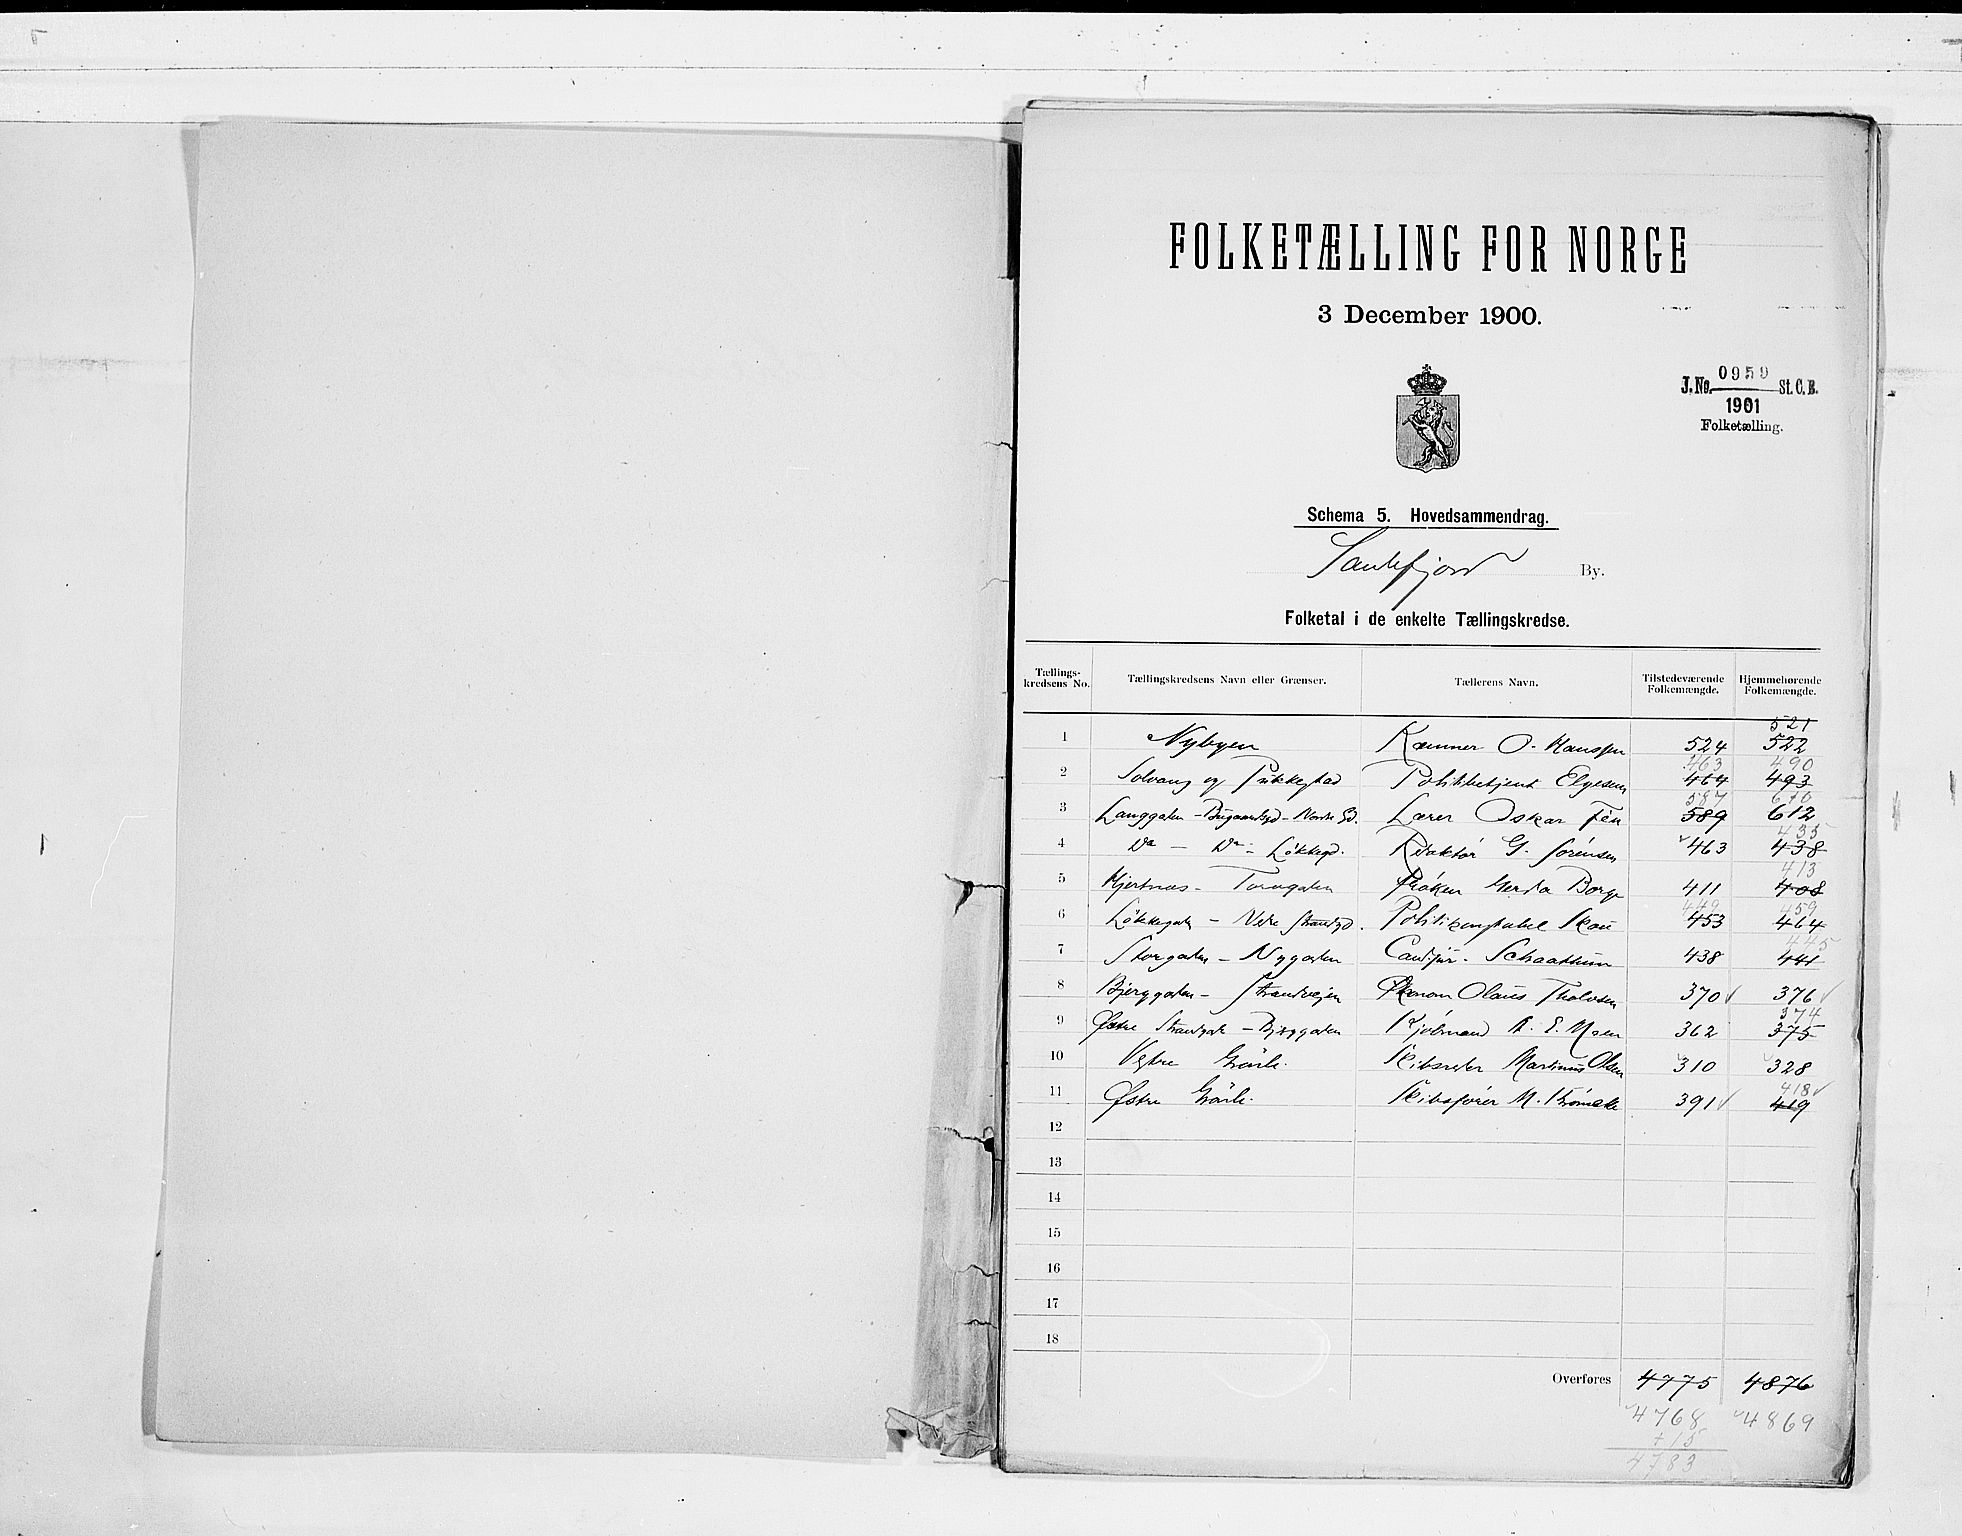 FOLKETÆLLING FOR NORGE
3 December 1900.
J.No. 0959 St. C. B.
1901
Folketælling.
Schema 5. Hovedsammendrag.
Sandefjord By.
Folketal i de enkelte Tællingskredse.
Tællings-kredsens No. Tællingskredsens Navn eller Grænser. Tællerens Navn. Tilstedeværende Folkemængde. Hjemmehørende Folkemængde.
521
1 Nybyen Kæmner O. Hanssen 524 522
463 490
2 Solvang og Pukkestad Politibetjent Elgesem 464 493
587 610
3 Langgaden - Bugaardsgd - Nordre Gd. Lærer Oskar Fén 589 612
435
4 Do - Do - Løkkegd. Redaktør G. Sørensen 463 438
413
5 Hjertnæs - Torvgaden Frøken Gerda Borge 411 408
449 459
6 Løkkegaden - Nedre Strandgd. Politikonstabel Skou 453 464
445
7 Storgaden - Nygaden Cand. jur. Schaathun 438 441
8 Bjerggaden - Strandvejen Økonom Olaus Tholvsen 370 376
374
9 Østre Strandgade - Bjerggaden Kjøbmand A. E. Moen 362 375
10 Vestre Gravli. Skibsreder Martinius Olsen 310 328
418
11 Østre Gravli. Skibsfører M. 391 419
12
13
14
15
16
17
18
Overføres 4775 4876
4768 4869
+ 15
4783